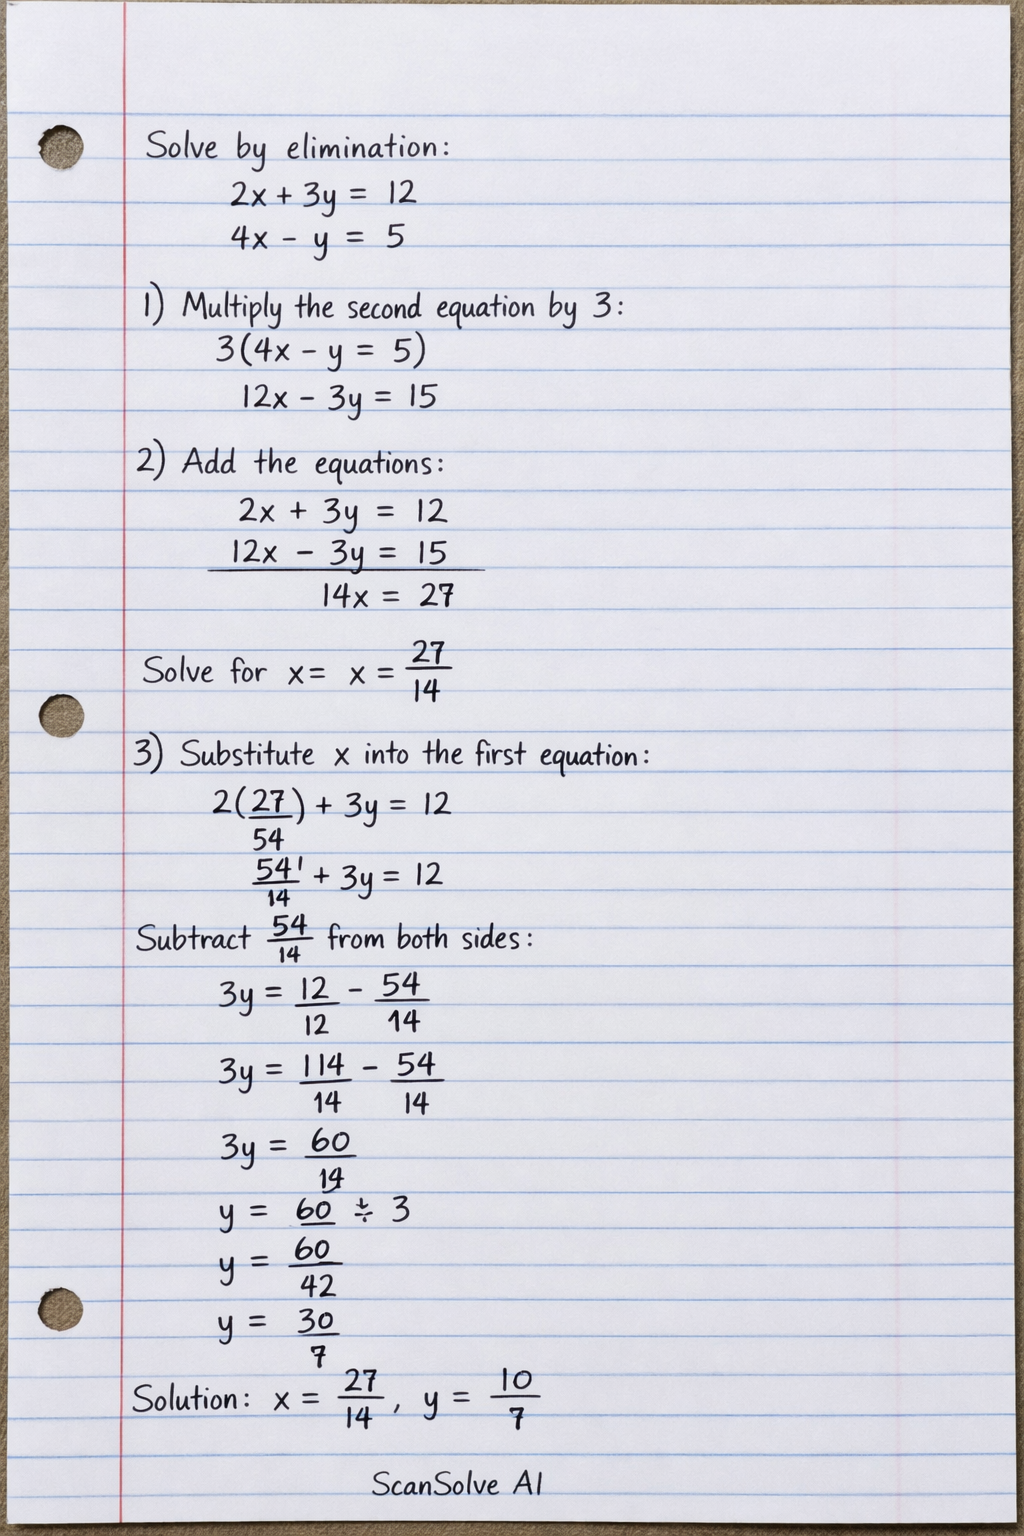 Solve by elimination:
2x + 3y = 12
4x - y = 5
1) Multiply the second equation by 3:
3(4x - y = 5)
12x - 3y = 15
2) Add the equations:
2x + 3y = 12
12x - 3y = 15
14x = 27
Solve for x= x = 27/14
3) Substitute x into the first equation:
2(27/54) + 3y = 12
54'/14 + 3y = 12
Subtract 54/14 from both sides:
3y = 12/12 - 54/14
3y = 114/14 - 54/14
3y = 60/14
y = 60 ÷ 3
y = 60/42
y = 30/7
Solution: x = 27/14, y = 10/7
ScanSolve AI